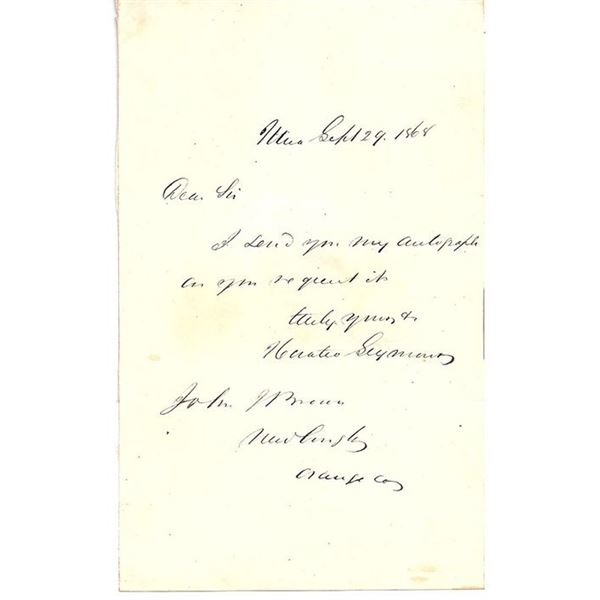 Utica Sept 29. 1868
Dear Sir
I send you my autograph
as you request it
truly yours &
Horatio Seymour
John J Brown
Orange Co